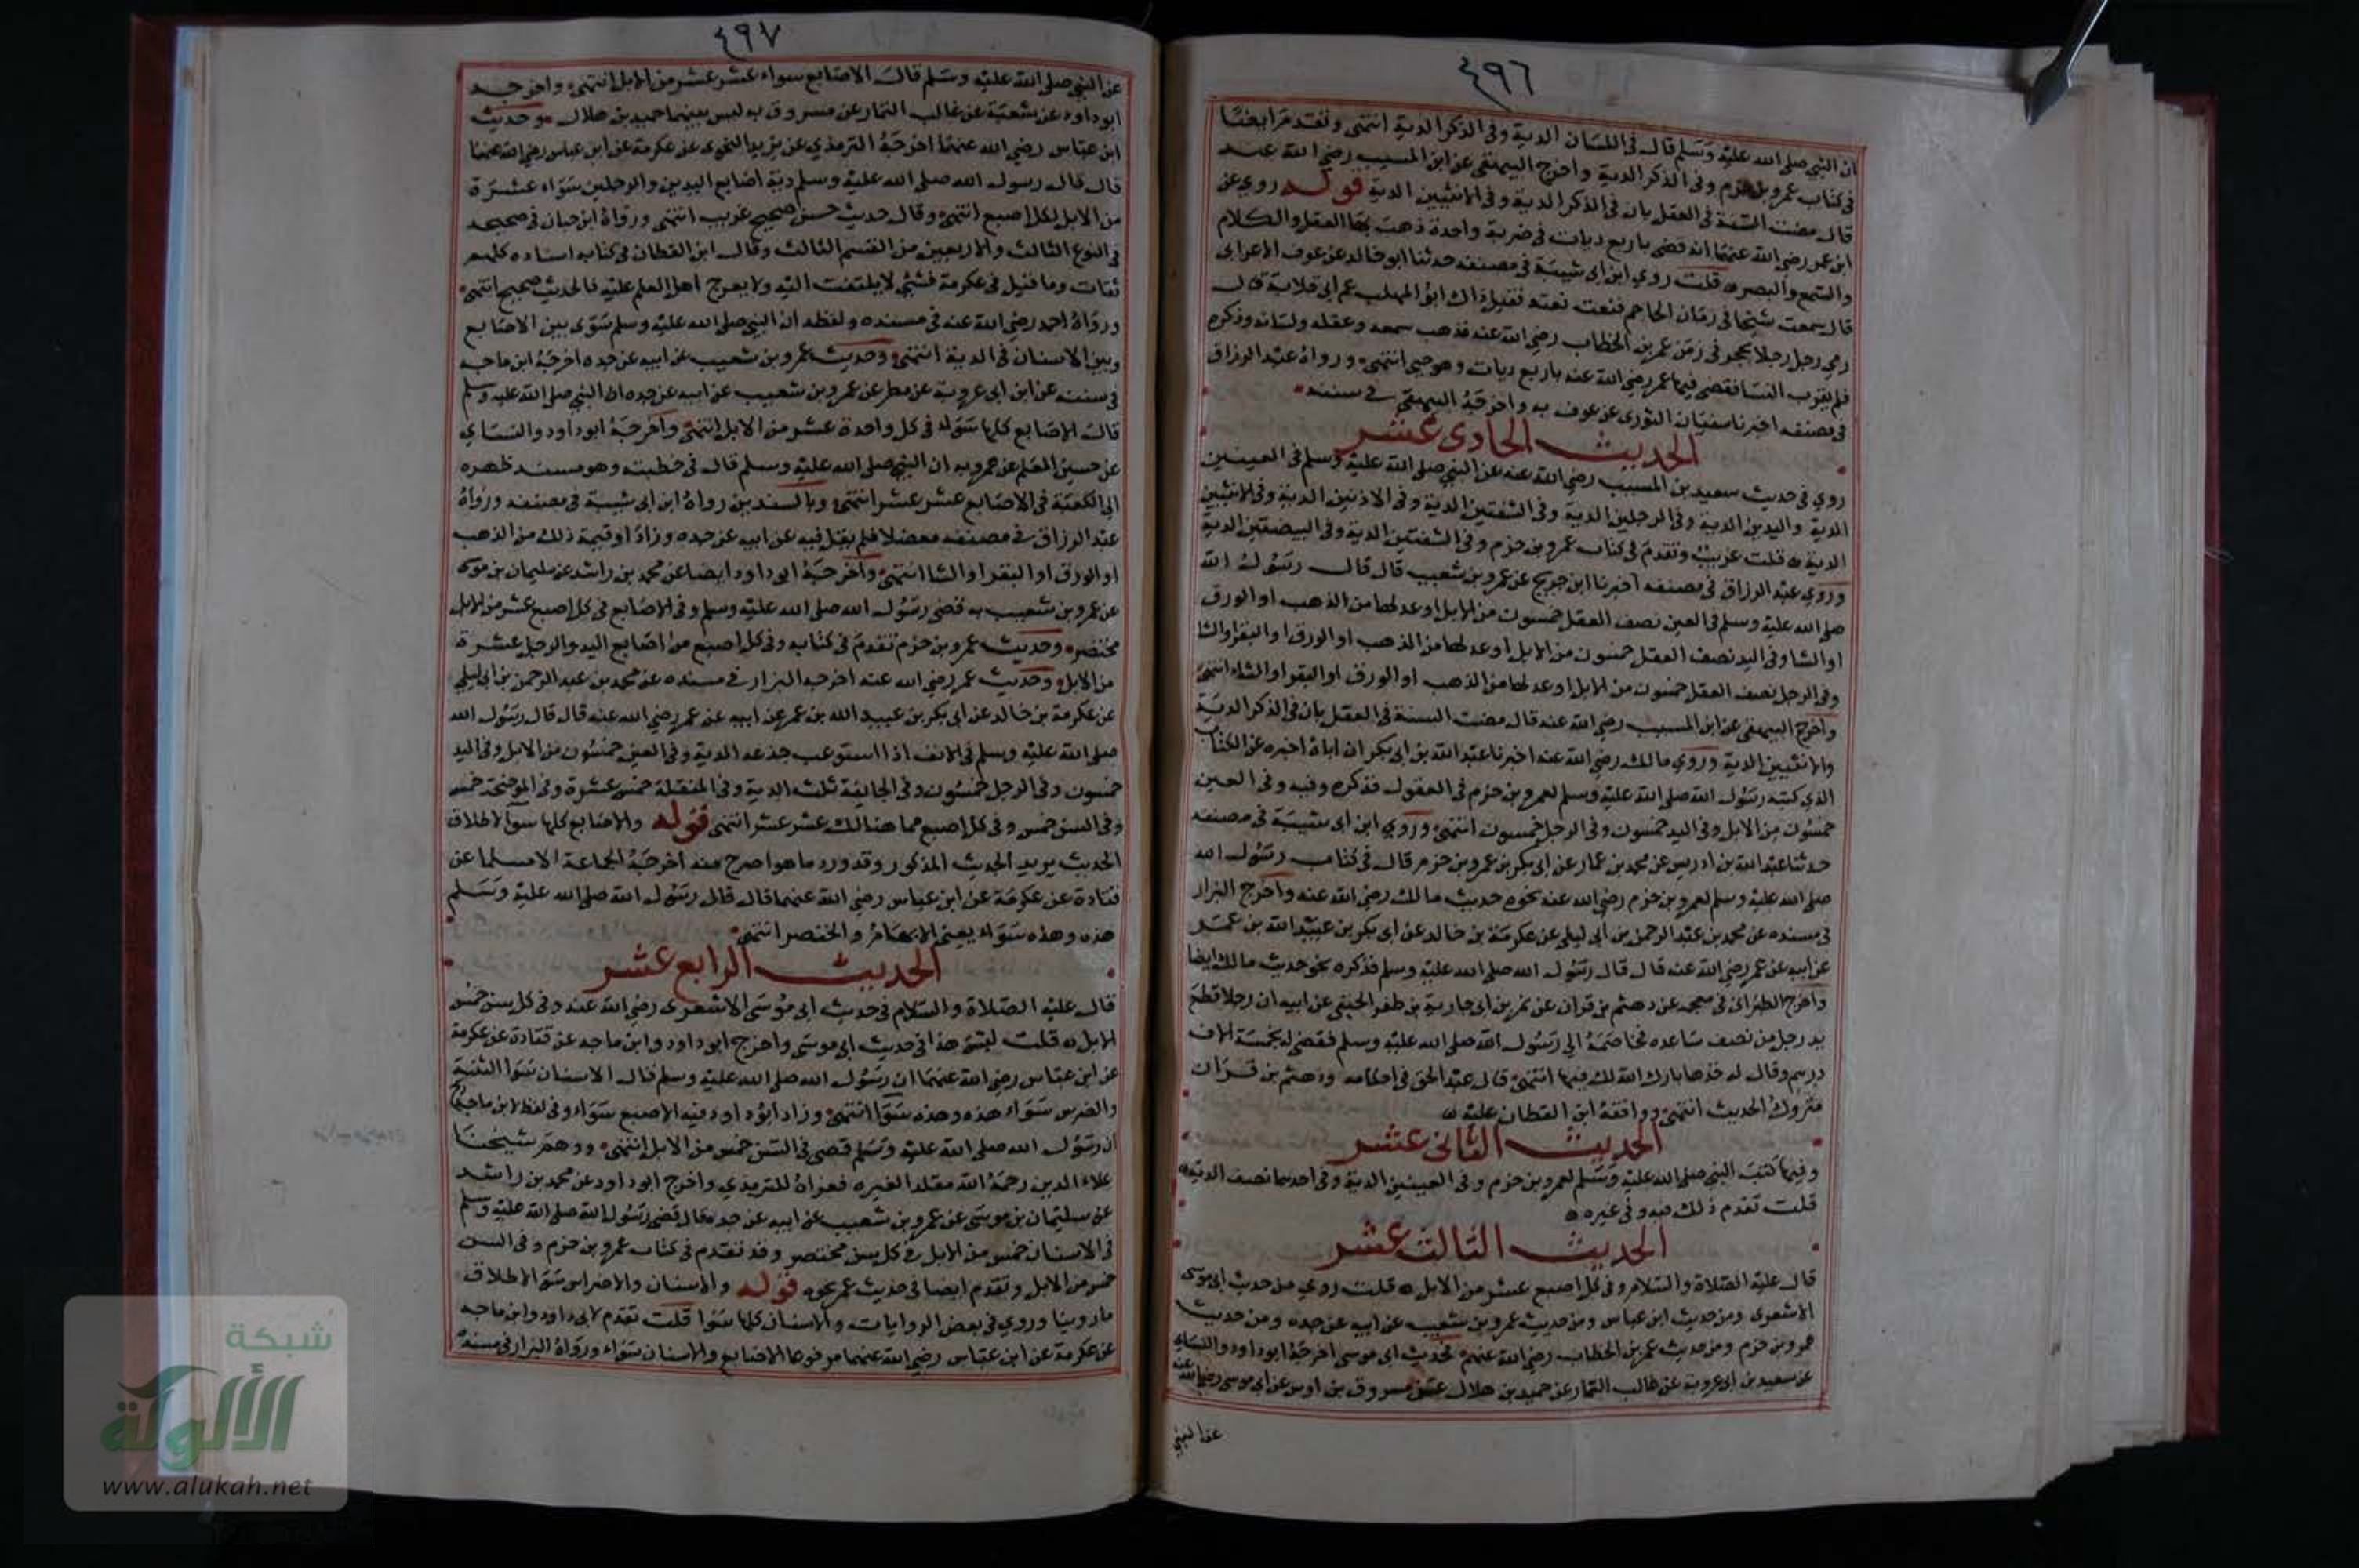 ٤٩٦
ان النبي صلى الله عليه وسلم قال في اللسان الدية وفي الذكر الدية انتهى وتقدم ايضا
في كتاب عمرو بن حزم وفي الذكر الدية واخرج البيهقي عن ابن المسيب رضي الله عنه
قال مضت السنة في العقل بان في الذكر الدية وفي الانثيين الدية قوله روي عن
ابن عمر رضي الله عنهما انه قضى باربع ديات في ضربة واحدة ذهب بها العقل والكلام
والسمع والبصر قلت روي ابن ابي شيبة في مصنفه حدثنا ابو خالد عن عوف الاعرابي
قال سمعت شيخا في زمان الحاجم فنعت نعته فقيل ذاك ابو المهلب عم ابي قلابة قال
رمى رجل رجلا بحجر في زمن عمر بن الخطاب رضي الله عنه فذهب سمعه وعقله ولسانه وذكره
فلم يقرب النسا فقضى فيها عمر رضي الله عنه باربع ديات وهو حي انتهى ورواه عبد الرزاق
في مصنفه اخبرنا سفيان الثوري عن عوف به واخرجه البيهقي في سننه
الحديث الحادي عشر
روي في حديث سعيد بن المسيب رضي الله عنه عن النبي صلى الله عليه وسلم في العينين
الدية واليدين الدية وفي الرجلين الدية وفي الشفتين الدية وفي الاذنين الدية وفي الانثيين
الدية قلت غريب وتقدم في كتاب عمرو بن حزم وفي الشفتين الدية وفي البيضتين الدية
وروي عبد الرزاق في مصنفه اخبرنا ابن جريج عن عمرو بن شعيب قال قال رسول الله
صلى الله عليه وسلم في العين نصف العقل خمسون من الابل او عدلها من الذهب او الورق
او الشا وفي اليد نصف العقل خمسون من الابل او عدلها من الذهب او الورق او البقر او الشا
وفي الرجل نصف العقل خمسون من الابل او عدلها من الذهب او الورق او البقر او الشاء انتهى
واخرج البيهقي عن ابن المسيب رضي الله عنه قال مضت السنة في العقل بان في الذكر الدية
والانثيين الدية وروي مالك رضي الله عنه اخبرنا عبد الله بن ابي بكر ان اباه اخبره عن الكتاب
الذي كتبه رسول الله صلى الله عليه وسلم لعمرو بن حزم في العقول فذكره وفيه وفي العين
خمسون من الابل وفي اليد خمسون وفي الرجل خمسون انتهى وروي ابن ابي شيبة في مصنفه
حدثنا عبد الله بن ادريس عن محمد بن عمار عن ابي بكر بن عمرو بن حزم قال في كتاب رسول الله
صلى الله عليه وسلم لعمرو بن حزم رضي الله عنه نحوه حديث مالك رضي الله عنه واخرج البزار
في مسنده عن محمد بن عبد الرحمن بن ابي ليلى عن عكرمة بن خالد عن ابي بكر بن عبيد الله بن عمر
عن ابيه عن عمر رضي الله عنه قال قال رسول الله صلى الله عليه وسلم فذكره نحو حديث مالك ايضا
واخرج الطبراني في معجمه عن دهثم بن قران عن نمران بن جارية بن ظفر الحنفي عن ابيه ان رجلا قطع
يد رجل من نصف ساعده فخاصمه الى رسول الله صلى الله عليه وسلم فقضى له بخمسة الاف
درهم وقال له خذها بارك الله لك فيها انتهى قال عبد الحق في احكامه ودهثم بن قران
متروك الحديث انتهى ووافقه ابن القطان عليه
الحديث الثاني عشر
وفيما كتب النبي صلى الله عليه وسلم لعمرو بن حزم وفي العينين الدية وفي احدهما نصف الدية
قلت تقدم ذلك فيه وفي غيره
الحديث الثالث عشر
قال عليه الصلاة والسلام وفي كل اصبع عشر من الابل قلت روي من حديث ابي موسى
الاشعري ومن حديث ابن عباس ومن حديث عمرو بن شعيب عن ابيه عن جده ومن حديث
عمرو بن حزم ومن حديث عمر بن الخطاب رضي الله عنهم فحديث ابي موسى اخرجه ابو داود والنساي
عن سعيد بن ابي عروبة عن غالب التمار عن حميد بن هلال عن مسروق بن اوس عن ابي موسى رضي الله عنه
عن النبي
٤٩٧
عن النبي صلى الله عليه وسلم قال الاصابع سواء عشر عشر من الابل انتهى واخرجه
ابو داود عن شعبة عن غالب التمار عن مسروق به ليس بينهما حميد بن هلال وحديث
ابن عباس رضي الله عنهما اخرجه الترمذي عن يزيد النحوي عن عكرمة عن ابن عباس رضي الله عنهما
قال قال رسول الله صلى الله عليه وسلم دية اصابع اليدين والرجلين سواء عشرة
من الابل لكل اصبع انتهى وقال حديث حسن صحيح غريب انتهى ورواه ابن حبان في صحيحه
في النوع الثالث والاربعين من القسم الثالث وقال ابن القطان في كتابه اسناده كلهم
ثقات وما قيل في عكرمة فشيء لا يلتفت اليه ولا يعرج اهل العلم عليه فالحديث صحيح انتهى
ورواه احمد رضي الله عنه في مسنده ولفظه ان النبي صلى الله عليه وسلم سوى بين الاصابع
وبين الاسنان في الدية انتهى وحديث عمرو بن شعيب عن ابيه عن جده اخرجه ابن ماجه
في سننه عن ابن ابي عروبة عن مطر عن عمرو بن شعيب عن ابيه عن جده ان النبي صلى الله عليه وسلم
قال الاصابع كلها سواء في كل واحدة عشر من الابل انتهى واخرجه ابو داود والنساي
عن حسين المعلم عن عمرو به ان النبي صلى الله عليه وسلم قال في خطبته وهو مسند ظهره
الى الكعبة في الاصابع عشر عشر انتهى وبالسندين رواه ابن ابي شيبة في مصنفه ورواه
عبد الرزاق في مصنفه معضلا فلم يقل فيه عن ابيه عن جده وزاد او قيمة ذلك من الذهب
او الورق او البقر او الشا انتهى واخرجه ابو داود ايضا عن محمد بن راشد عن سليمان بن موسى
عن عمرو بن شعيب به قضى رسول الله صلى الله عليه وسلم وفي الاصابع في كل اصبع عشر من الابل
مختصر وحديث عمرو بن حزم تقدم في كتابه وفي كل اصبع من اصابع اليد والرجل عشرة
من الابل وحديث عمر رضي الله عنه اخرجه البزار في مسنده عن محمد بن عبد الرحمن بن ابي ليلى
عن عكرمة بن خالد عن ابي بكر بن عبيد الله بن عمر عن ابيه عن عمر رضي الله عنه قال قال رسول الله
صلى الله عليه وسلم في الانف اذا استوعب جدعه الدية وفي العين خمسون من الابل وفي اليد
خمسون وفي الرجل خمسون وفي الجائفة ثلث الدية وفي المنقلة خمس عشرة وفي الموضحة خمس
وفي السن خمس وفي كل اصبع مما هنالك عشر عشر انتهى قوله والاصابع كلها سوآ لاطلاق
الحديث يريد الحديث المذكور وقد ورد ما هو اصرح منه اخرجه الجماعة الا مسلما عن
قتادة عن عكرمة عن ابن عباس رضي الله عنهما قال قال رسول الله صلى الله عليه وسلم
هذه وهذه سواء يعني الابهام والخنصر انتهى
الحديث الرابع عشر
قال عليه الصلاة والسلام في حديث ابي موسى الاشعري رضي الله عنه وفي كل سن خمس
الابل قلت ليس هذا في حديث ابي موسى واخرج ابو داود وابن ماجه عن قتادة عن عكرمة
عن ابن عباس رضي الله عنهما ان رسول الله صلى الله عليه وسلم قال الاسنان سوا الثنية
والضرس سواء هذه وهذه سوا انتهى وزاد ابو داود فيه الاصبع سواء وفي لفظ لابن ماجه
ان رسول الله صلى الله عليه وسلم قضى في السن خمس من الابل انتهى ووهم شيخنا
علاء الدين رحمه الله مقلدا لغيره فعزاه للترمذي واخرج ابو داود عن محمد بن راشد
عن سليمان بن موسى عن عمرو بن شعيب عن ابيه عن جده قال قضى رسول الله صلى الله عليه وسلم
في الاسنان خمس من الابل في كل سن مختصر وقد تقدم في كتاب عمرو بن حزم وفي السن
خمس من الابل وتقدم ايضا في حديث عمر نحوه قوله والاسنان والاضراس سوا لاطلاق
ما روينا وروي في بعض الروايات والاسنان كلها سوا قلت تقدم لابي داود وابن ماجه
عن عكرمة عن ابن عباس رضي الله عنهما مرفوعا الاصابع والاسنان سواء ورواه البزار في مسنده
شبكة
الألوكة
www.alukah.net